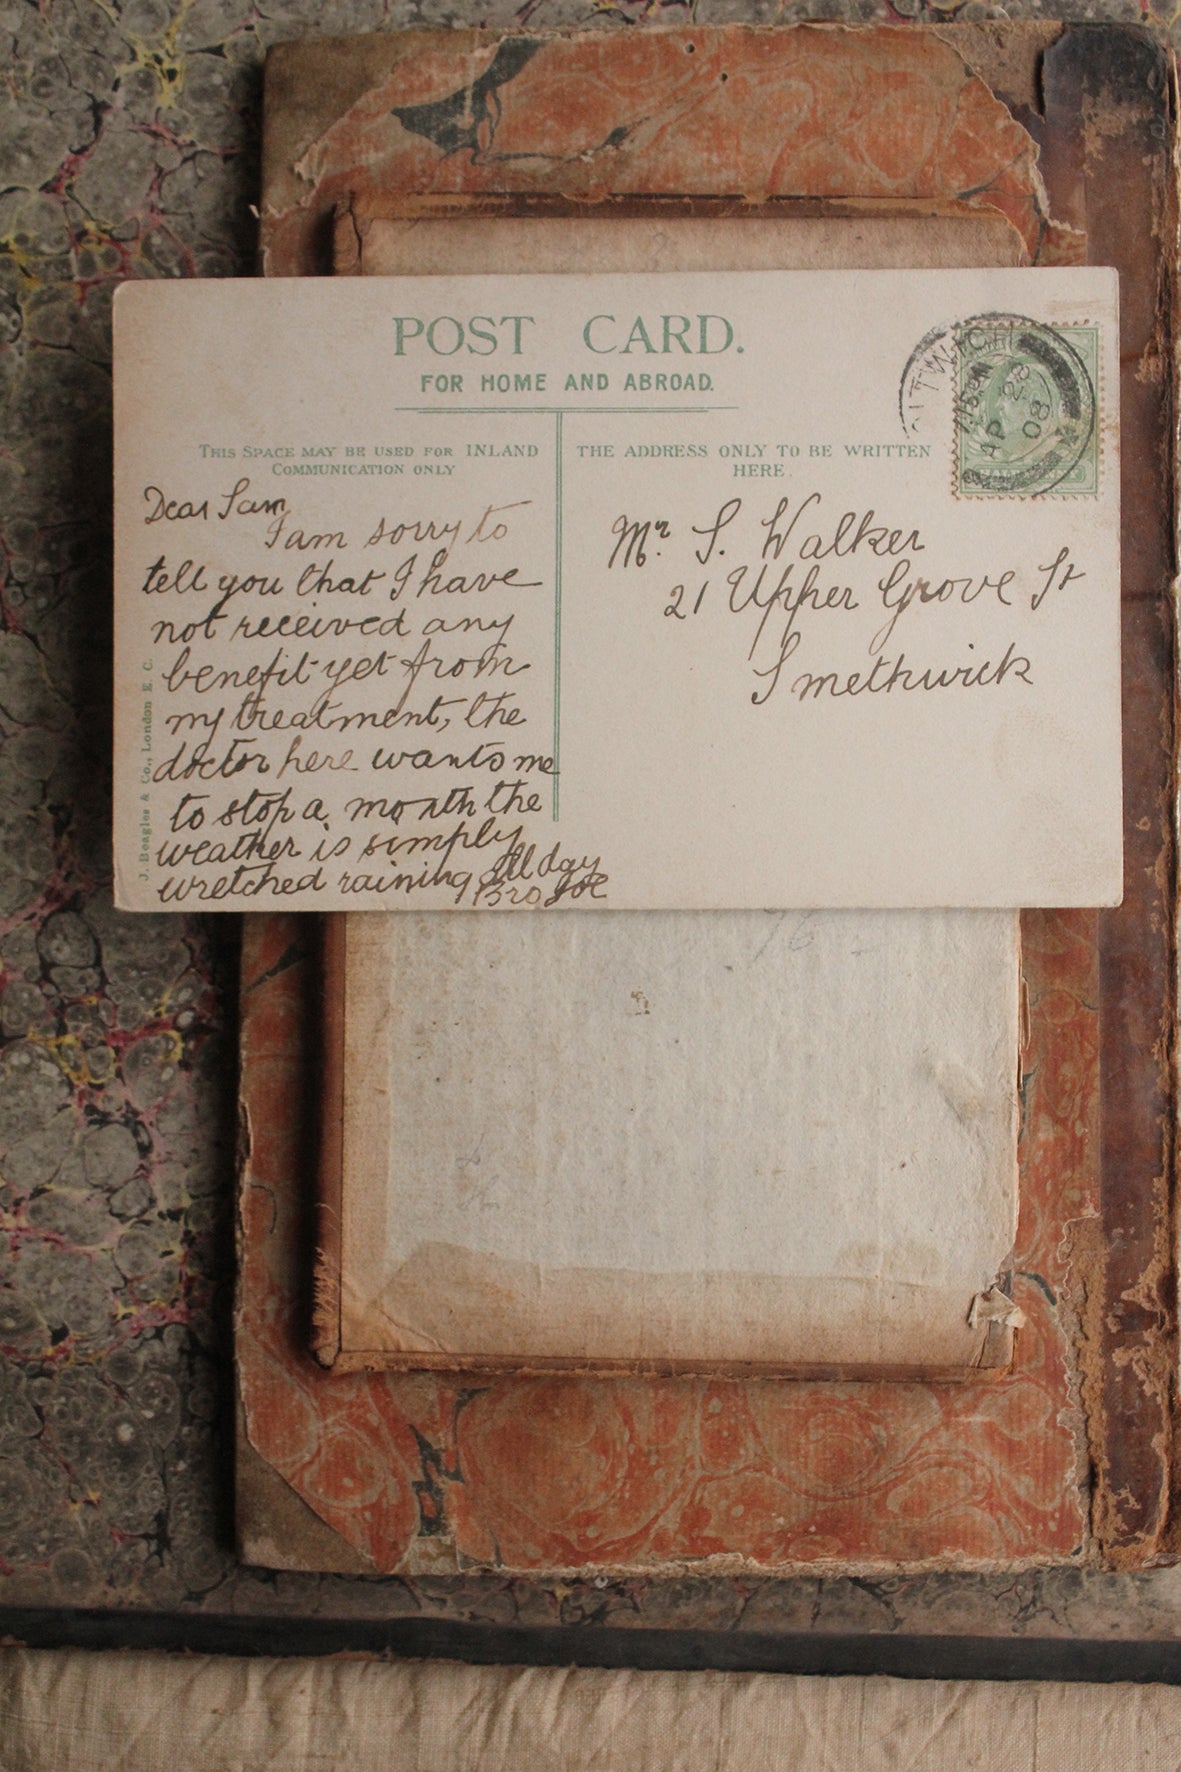 POST CARD.
FOR HOME AND ABROAD.
THIS SPACE MAY BE USED FOR INLAND
COMMUNICATION ONLY
Dear Sam
I am sorry to
tell you that I have
not received any
benefit yet from
my treatment, the
doctor here wants me
to stop a month the
weather is simply
wretched raining all day
Bro Joe
J. Beagles & Co., London E. C.
THE ADDRESS ONLY TO BE WRITTEN
HERE.
Mr. S. Walker
21 Upper Grove St
Smethwick
AP
08